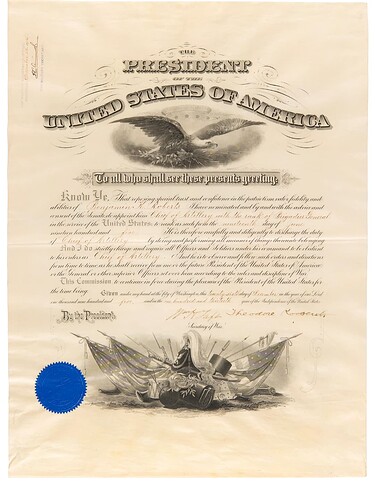 THE
PRESIDENT
OF THE
UNITED STATES OF AMERICA
To all who shall see these presents greeting:
Know Ye, That reposing special trust and confidence in the patriotism, valor, fidelity and
abilities of I have nominated and by and with the advice and
consent of the Senate do appoint him Chief of Artillery with the rank of Brigadier General
in the service of the United States: to rank as such from the day of
nineteen hundred and He is therefore carefully and diligently to discharge the duty
of Chief of Artillery by doing and performing all manner of things thereunto belonging.
And I do strictly charge and require all Officers and Soldiers under his command to be obedient
to his orders as Chief of Artillery And he is to observe and follow such orders and directions
from time to time as he shall receive from me or the future President of the United States of America
or the General or other superior Officers set over him according to the rules and discipline of War.
This Commission to continue in force during the pleasure of the President of the United States for
the time being.
Given under my hand at the City of Washington, this day of in the year of our Lord
one thousand nine hundred and and in the one hundred and of the Independence of the United States.
By the President:
Wm H Taft Theodore Roosevelt
Secretary of War.